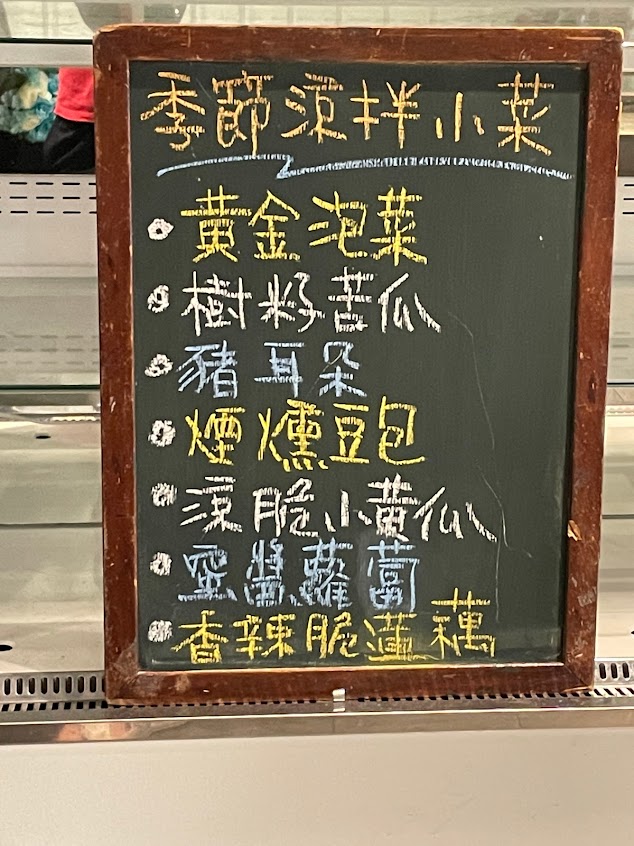 季節涼拌小菜
黃金泡菜
樹籽苦瓜
豬耳朵
煙燻豆包
涼脆小黃瓜
蜜醬蘿蔔
香辣脆蓮藕